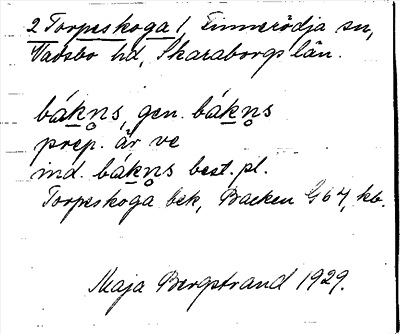 2 Torpeskoga 1, Finnerödja sn,
Vadsbo hd, Skaraborgs län.
bák̠n̥s, gen. bák̠n̥s
prep. är ve
ind. bák̠n̥s best. pl.
Torpeskoga bek, Backen G 64, kb.
Maja Bergstrand 1929.